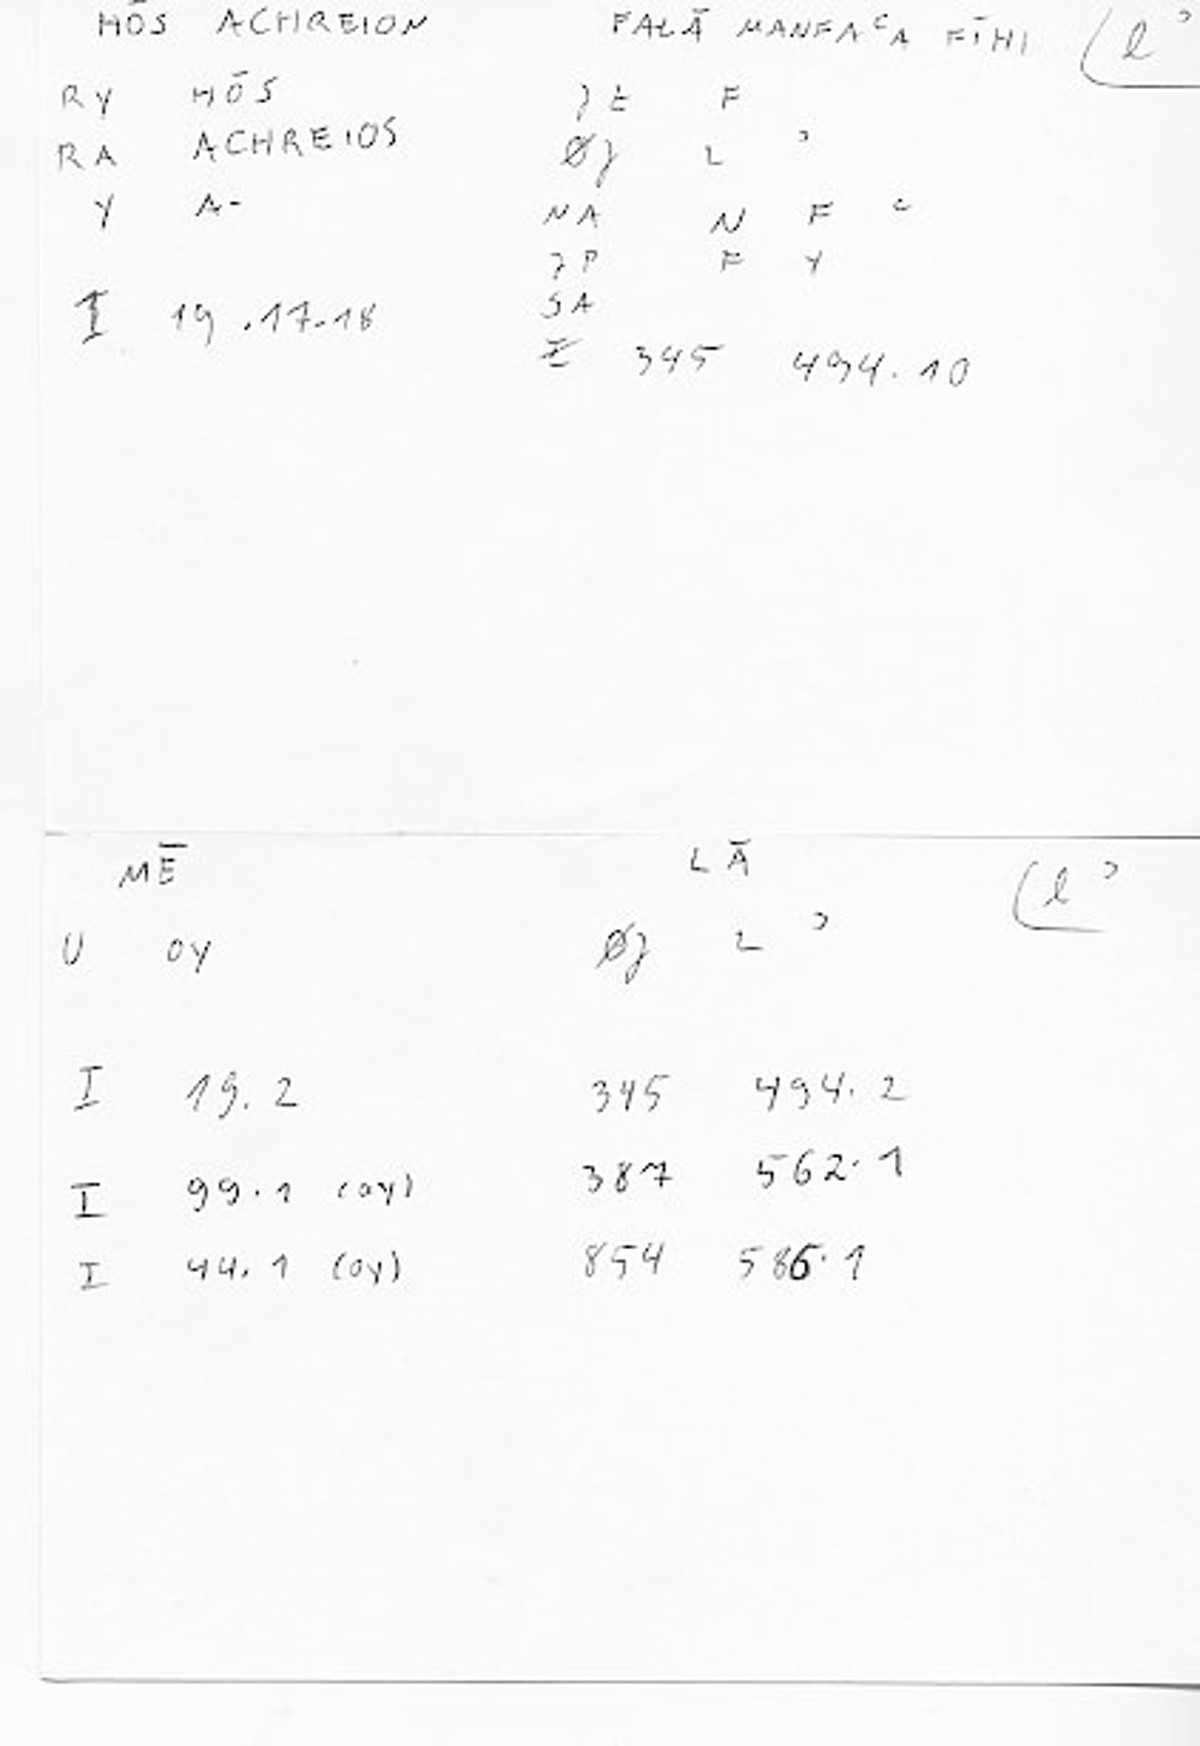 HŌS ACHREION FALĀ MANFAᶜA FĪHI (l ʾ
RY HŌS ʒE F
RA ACHREIOS Øʒ L ʾ
Y A- NA N F ᶜ
ʒP F Y
I 19.17-18 SA
I 345 494.10
MĒ LĀ (l ʾ
U OY Øʒ L ʾ
I 19.2 345 494.2
I 99.1 (OY) 387 562.1
I 44.1 (OY) 854 586.1